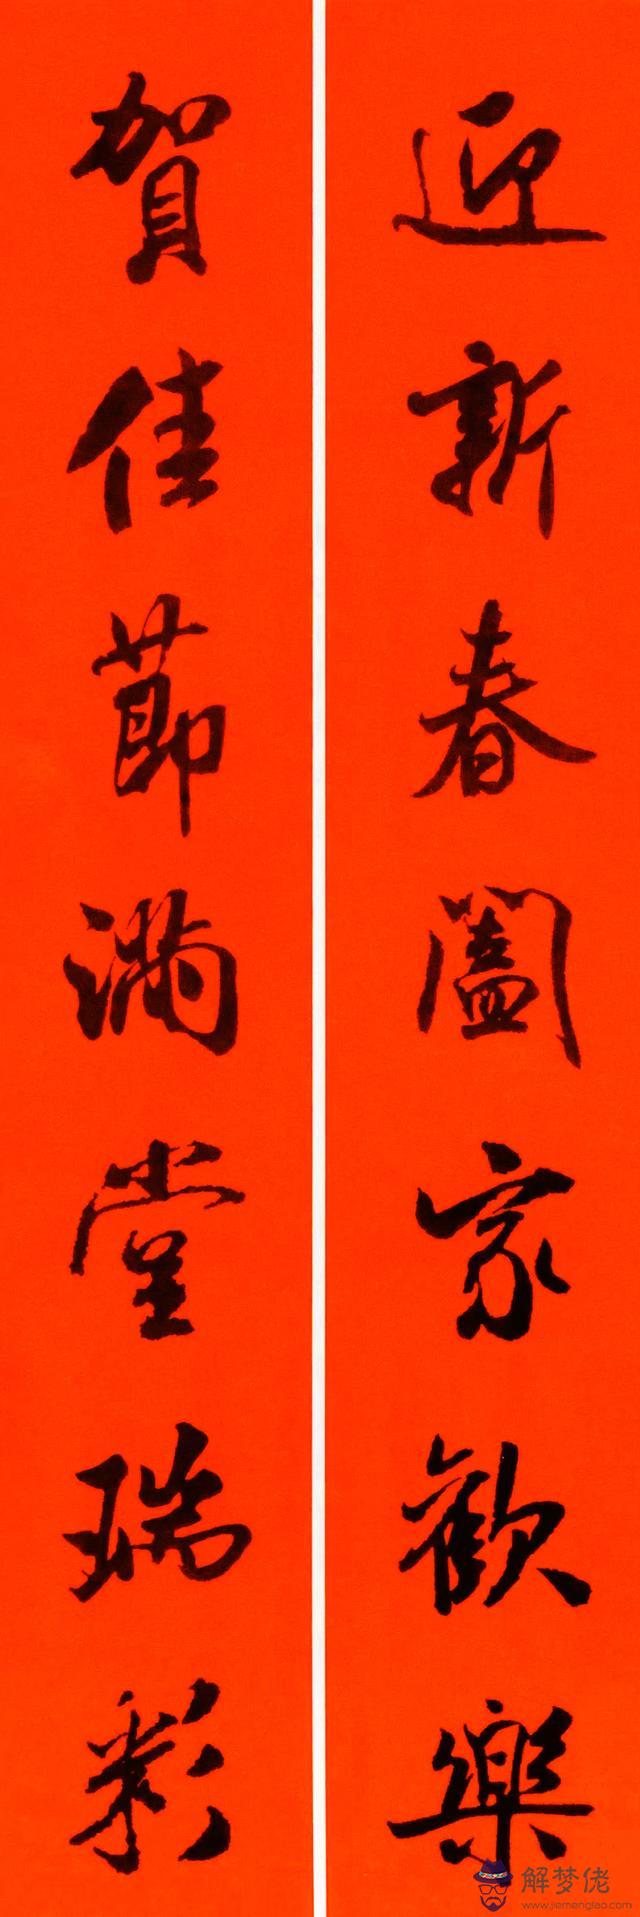 迎新春闔家歡樂
賀佳節滿堂瑞彩
解梦佬
www.jiemenglao.com